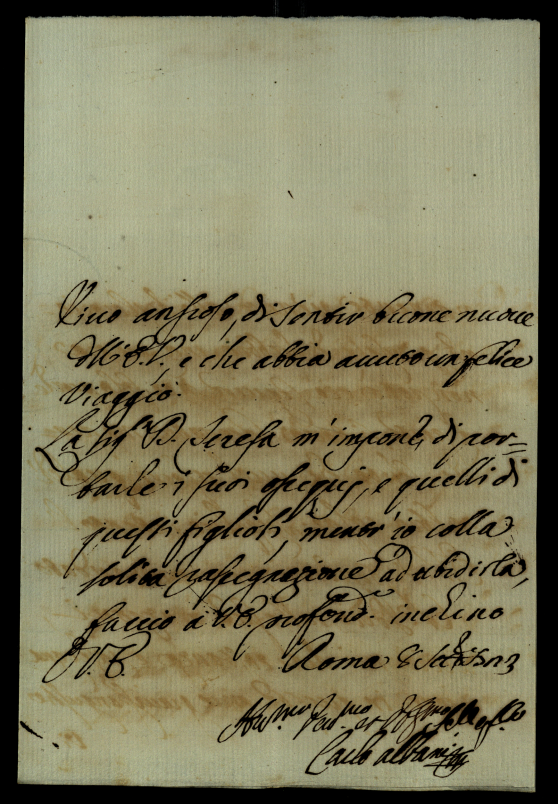 Vivo ansioso, di sentir buone nuove
dell'E.V., e che abbia avuto un felice
viaggio.
La Sig.ra D. Teresa m'impone, di por=
tarle i suoi ossequij, e quelli di
questi figlioli, mentr'io colla
solita rassegnazione ad ubidirla,
faccio a V.E. profond. inchino
D. V.E. Roma 8
Carlo Albani